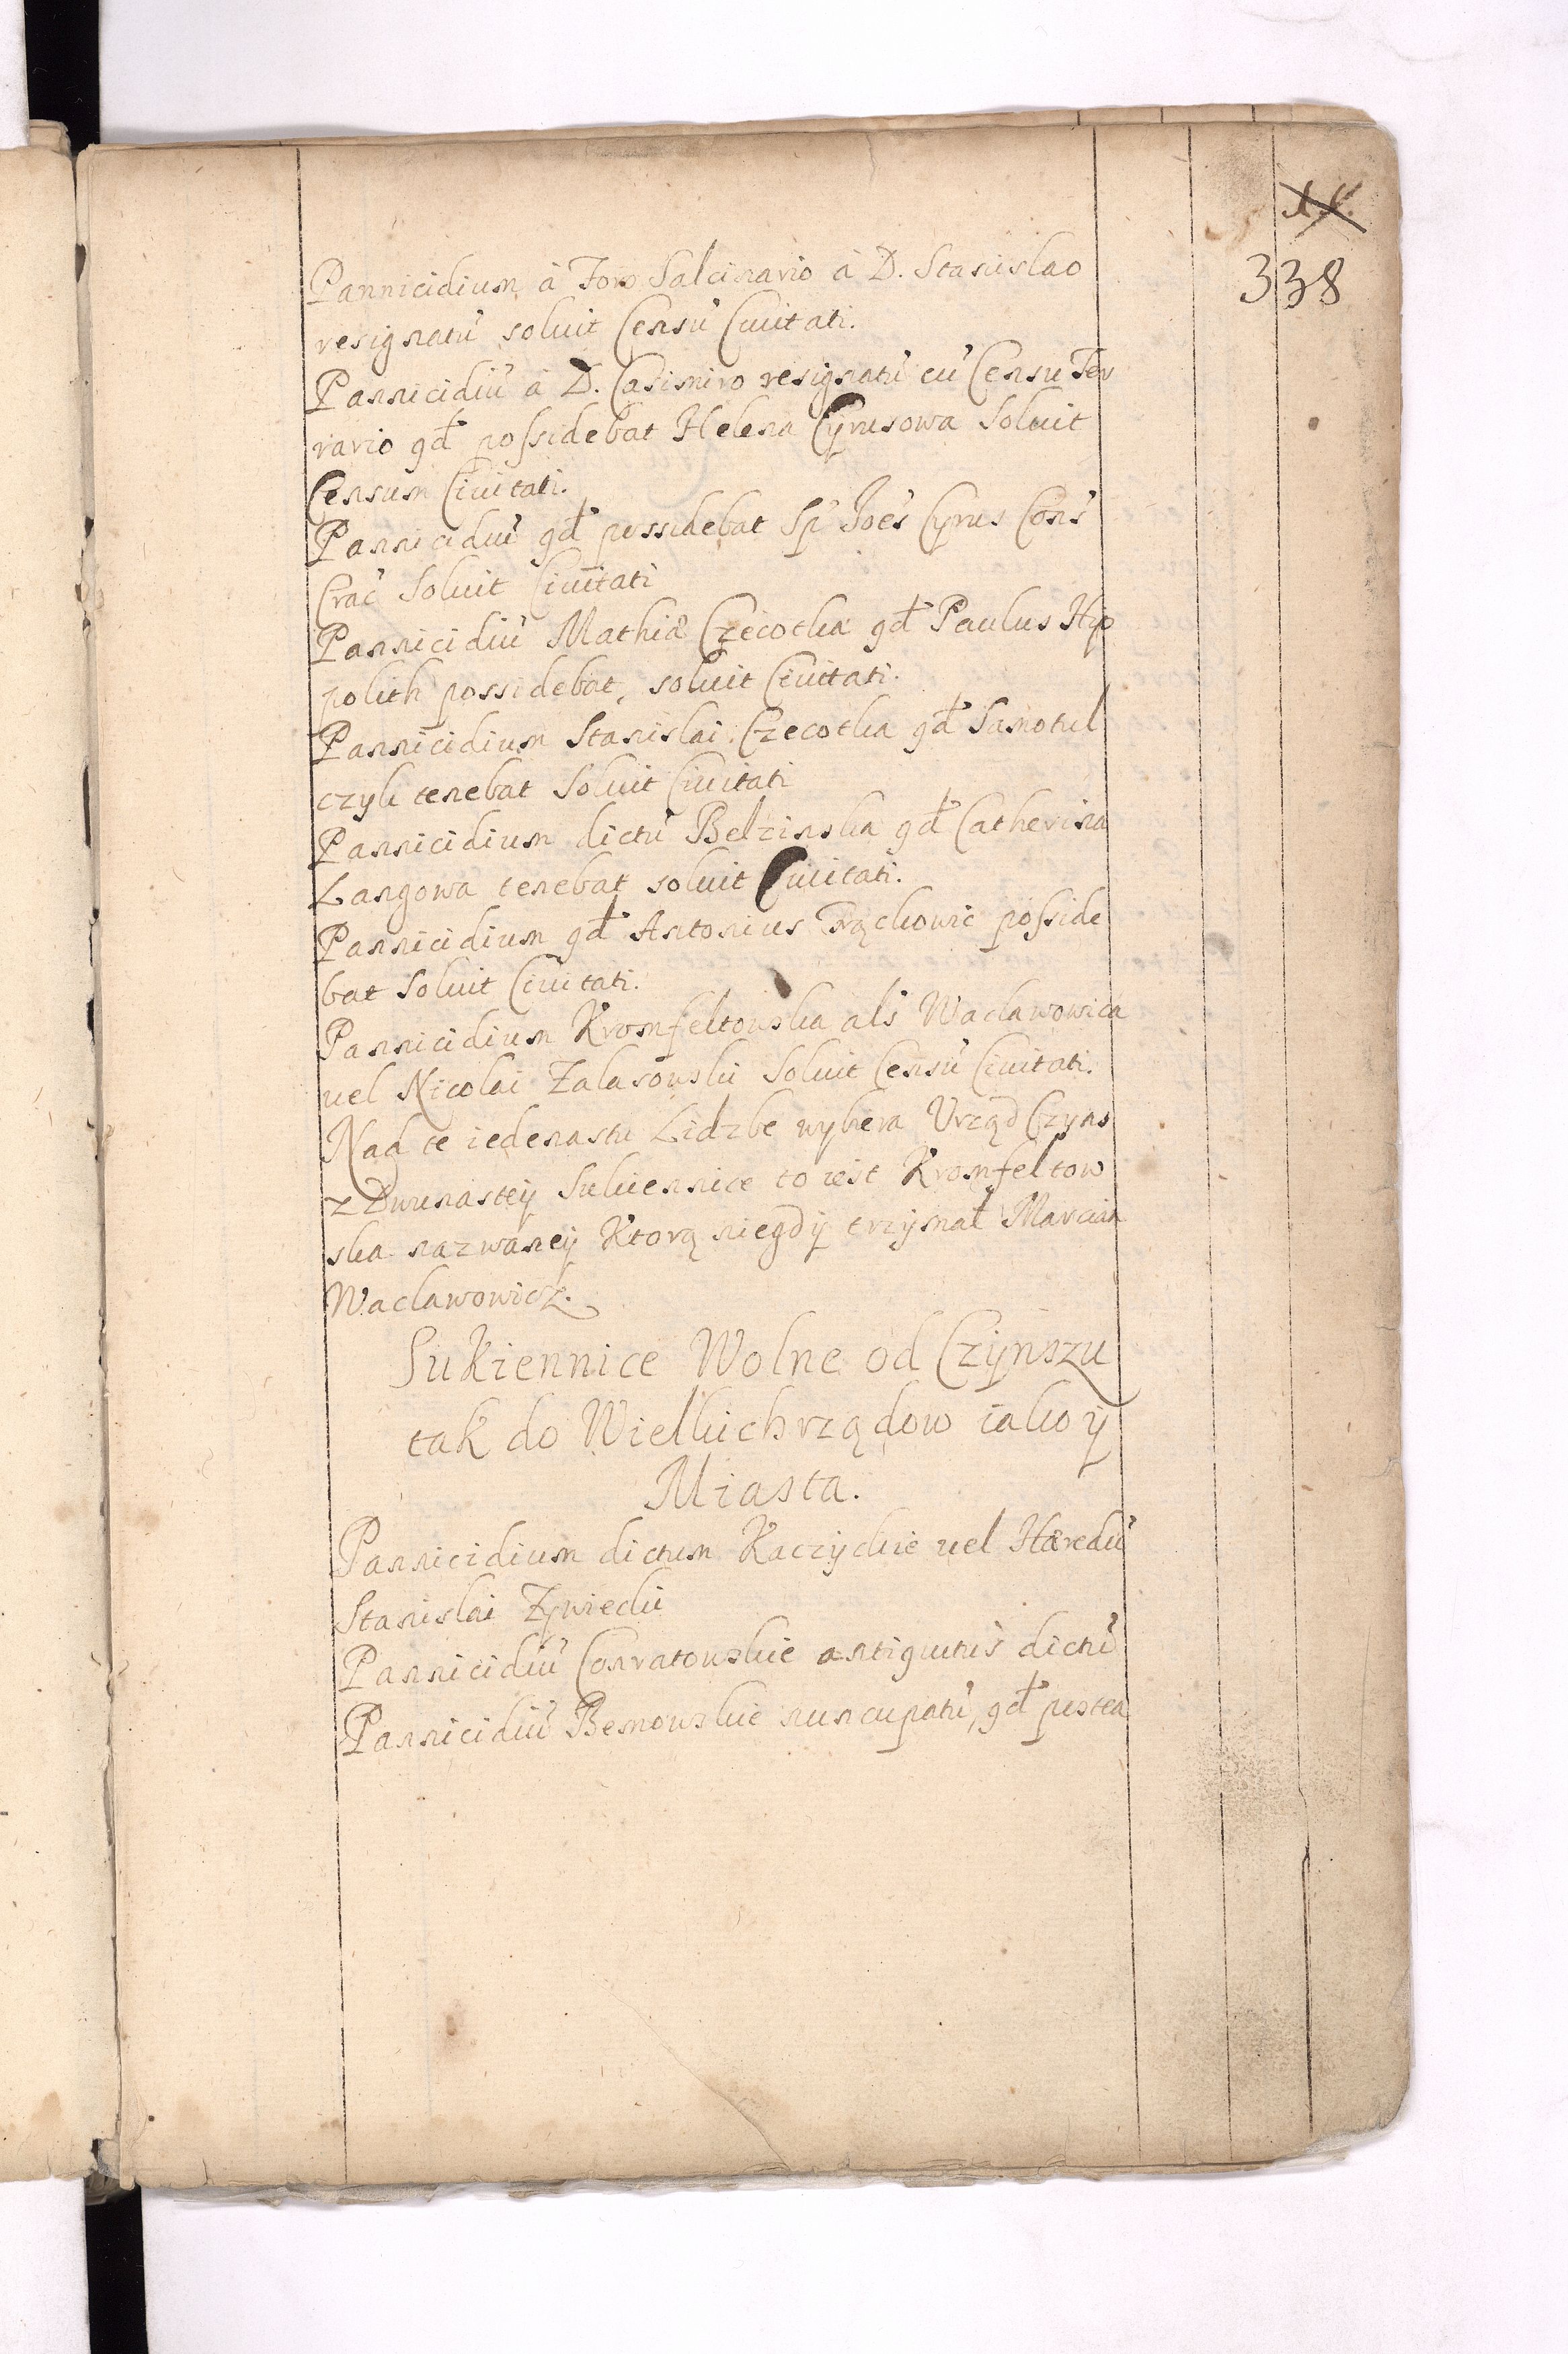 338
Pannicidium à Foro Salcinario à D. Stanislao
resignatu̓ soluit Censu̓ Ciuitati.
Pannicidiu̓ à D. Casimiro resignatu̓ cu̓ Censu Ter
rario qd possidebat Helena Cyrusowa Soluit
Censum Ciuitati.
Pannicidiu̓ qd possidebat Sp̓ Joe̓s Cyrus Cons̓
Crac̓ Soluit Ciuitati
Pannicidiu̓ Mathiæ Czeczotka qd Paulus Hip
polith possidebat, soluit Ciuitati.
Pannicidium Stanislai Czecotka qd Samotul
czyk tenebat Soluit Ciuitati
Pannicidium dictu̓ Belzinska qd Catherina
Langowa tenebat soluit Ciuitati.
Pannicidium qd Antonius posside
bat Soluit Ciuitati.
Pannicidium Kromfeltowska als̓ Waclawowica
uel Nicolai Zalasowski Soluit Censu̓ Ciuitati.
Nad te iedenastu Lidzbe wybiera Vrząd Czyns
z Dwunastey Sukiennice to iest Kromfeltow
ska nazwaney Ktorą niegdy trzymał Marcin
Waclawowicz.
Sukiennice Wolne od Czÿnszu
tak do Wielkich rządow iako ÿ
Miasta.
Pannicidium dictum Kaczyckie uel Hæredu̓
Stanislai Zywiecki
Pannicidiu̓ Conratowskie antiquitus dictu̓
Pannicidiu̓ Bemowskie nuncupatu̓, qd postea